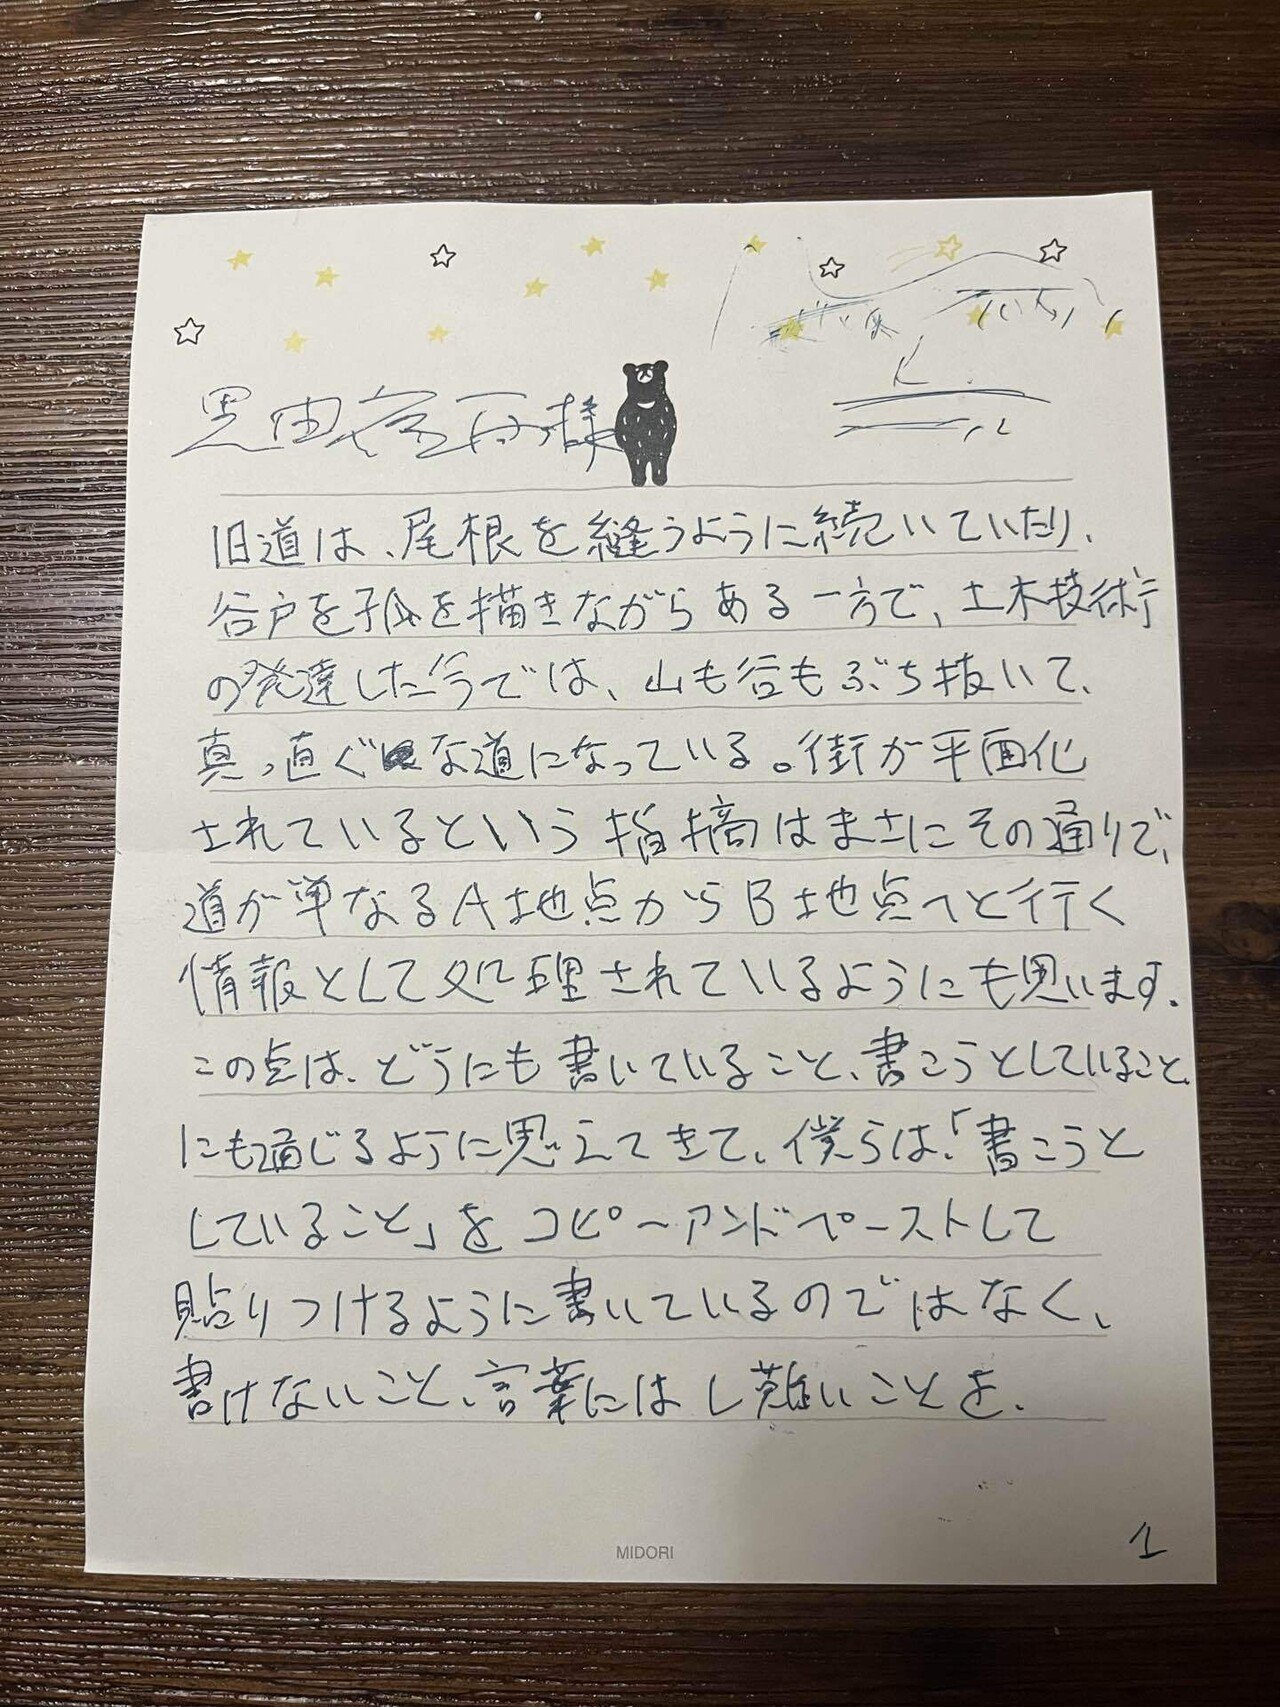 様
旧道は、尾根を縫うように続いていたり、
谷戸を弧を描きながらある一方で、土木技術
の発達した今では、山も谷もぶち抜いて、
真っ直ぐな道になっている。街が平面化
されているという指摘はまさにその通りで、
道が単なるA地点からB地点へと行く
情報として処理されているようにも思います。
この点は、どうにも書いていること、書こうとしていること、
にも通じるように思えてきて、僕らは、「書こうと
していること」をコピーアンドペーストして
貼りつけるように書いているのではなく、
書けないこと、言葉にはし難いことを、
MIDORI
1